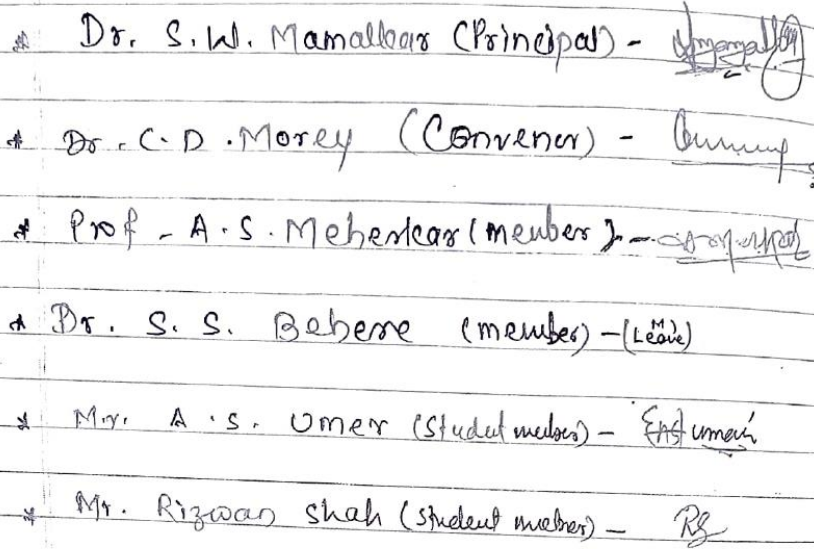 * Dr. S.W. Mamalkar (Principal) -
* Dr. C.D. Morey (Convener) -
* Prof - A.S. Meherkar (member) -
* Dr. S.S. Bebere (member) - (M) (Leave)
* Mr. A.S. Umer (Studut member) -
* Mr. Rizwan Shah (Student member) - RS